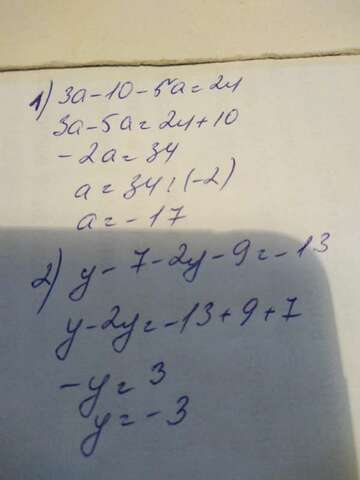 1) 3a-10-5a=24
3a-5a=24+10
-2a=34
a=34:(-2)
a=-17
2) y-7-2y-9=-13
y-2y=-13+9+7
-y=3
y=-3